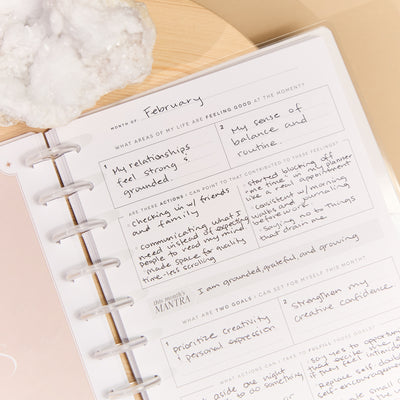 MONTH OF: February
WHAT AREAS OF MY LIFE ARE FEELING GOOD AT THE MOMENT?
1 My relationships
feel strong &
grounded.
2 My sense of
balance and
routine.
ARE THERE ACTIONS I CAN POINT TO THAT CONTRIBUTED TO THESE FEELINGS?
· checking in w/ friends
and family
· communicating what I
need instead of expecting
people to read my mind
· made space for quality
time - less scrolling
· started blocking off
me time in my planner
like a real appointment
· consistent w/ morning
walks and journaling
before work
· saying no to things
that drain me
this month's
MANTRA
I am grounded, grateful, and growing
WHAT ARE TWO GOALS I CAN SET FOR MYSELF THIS MONTH?
1 prioritize creativity
& personal expression
2 strengthen my
creative confidence
WHAT ACTIONS CAN I TAKE TO FULFILL THOSE GOALS?
aside one night
to do something
say yes to opportu
if they feel
Replace self doub
self-encouragemen
small